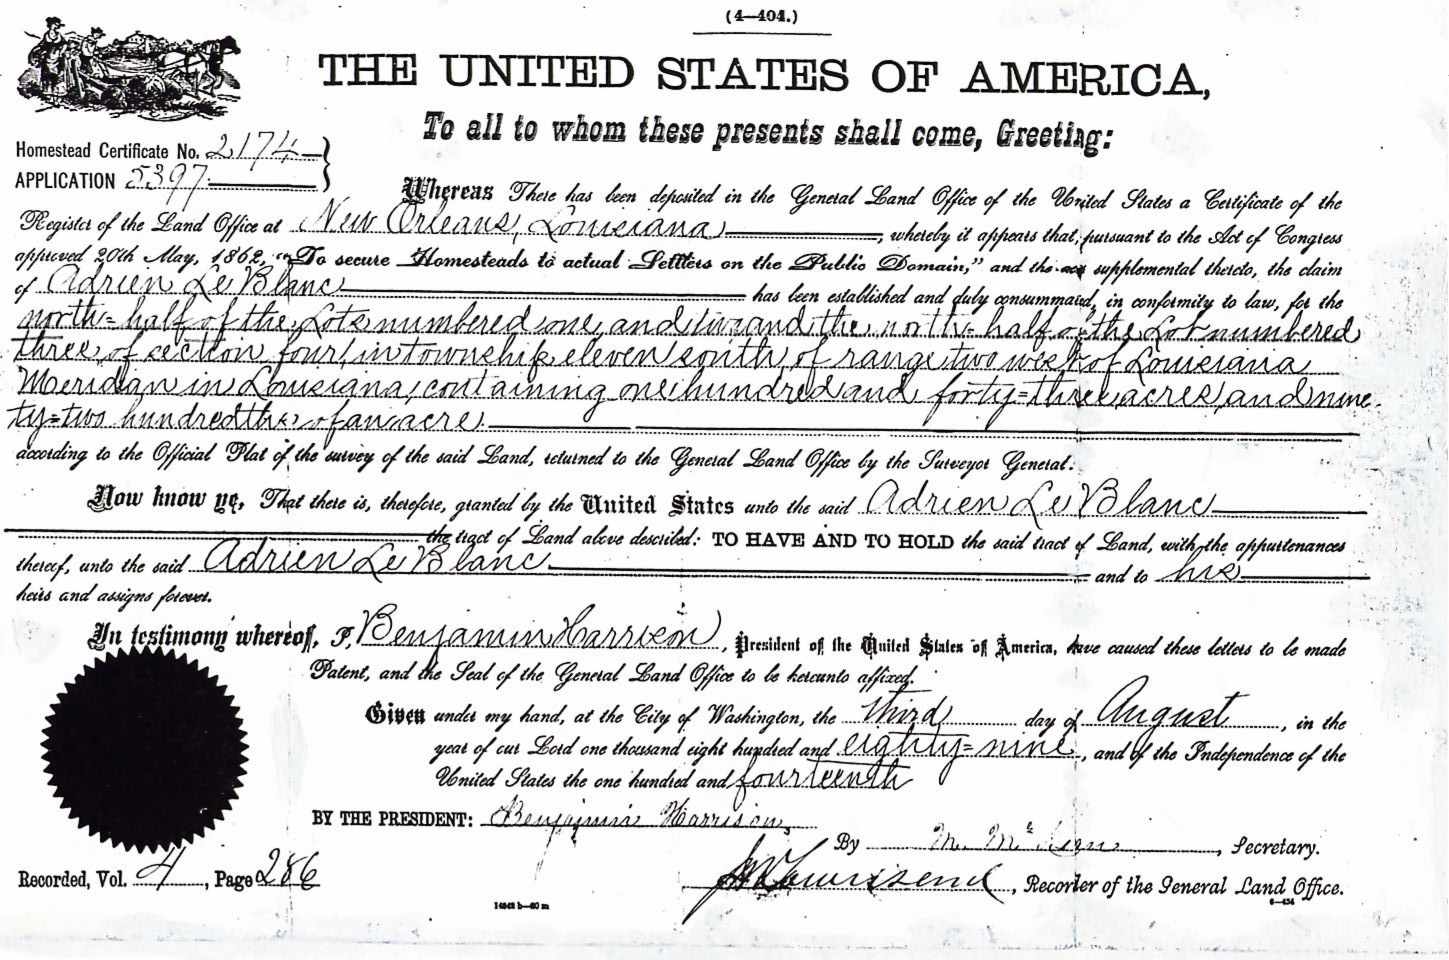 (4—404.)
THE UNITED STATES OF AMERICA,
To all to whom these presents shall come, Greeting:
Homestead Certificate No. 2174
APPLICATION 5397
Whereas There has been deposited in the General Land Office of the United States a Certificate of the
Register of the Land Office at New Orleans, Louisiana, whereby it appears that, pursuant to the Act of Congress
approved 20th May, 1862, "To secure Homesteads to actual Settlers on the Public Domain," and the acts supplemental thereto, the claim
of Adrien Le Blanc has been established and duly consummated, in conformity to law, for the
north=half of the Lots numbered one, and two and the north=half of the Lot numbered
three, of section four, in township eleven south, of range two west of Louisiana
Meridian in Louisiana, containing one hundred and forty=three acres, and nine
ty=two hundredths of an acre.
according to the Official Plat of the survey of the said Land, returned to the General Land Office by the Surveyor General.
Now know ye, That there is, therefore, granted by the United States unto the said Adrien Le Blanc
the tract of Land above described: TO HAVE AND TO HOLD the said tract of Land, with the appurtenances
thereof, unto the said Adrien Le Blanc and to his
heirs and assigns forever.
In testimony whereof, I, Benjamin Harrison, President of the United States of America, have caused these letters to be made
Patent, and the Seal of the General Land Office to be hereunto affixed.
Given under my hand, at the City of Washington, the third day of August, in the
year of our Lord one thousand eight hundred and eighty=nine, and of the Independence of the
United States the one hundred and fourteenth
BY THE PRESIDENT: Benjamin Harrison,
By M. McKean, Secretary.
Recorded, Vol. 4, Page 286
J M Townsend, Recorder of the General Land Office.